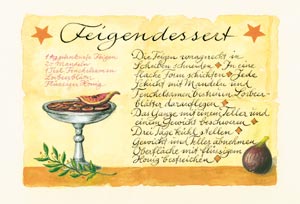 Feigendessert
Feigen
20 Mandeln
1 Teel. Fenchelsamen
Lorbeerblätter
Flüssiger Honig
Die Feigen waagrecht in
Scheiben schneiden In eine
flache Form schichten Jede
Schicht mit Mandeln und
Fenchelsamen bestreuen, Lorbeer-
blätter darauflegen
Das Ganze mit einem Teller und
einem Gewicht beschweren
Drei Tage kühl stellen
Gewicht und Teller abnehmen
Oberfläche mit flüssigem
Honig bestreichen